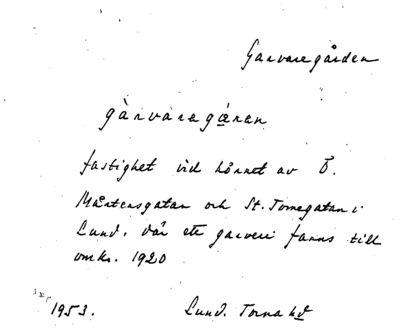 Garvaregården
gàrvaregɷ́ran
fastighet vid hörnet av Ö.
Mårtensgatan och St. Tomegatan i
Lund, där ett garveri fanns till
omkr. 1920
1953.
Lund. Torna hd